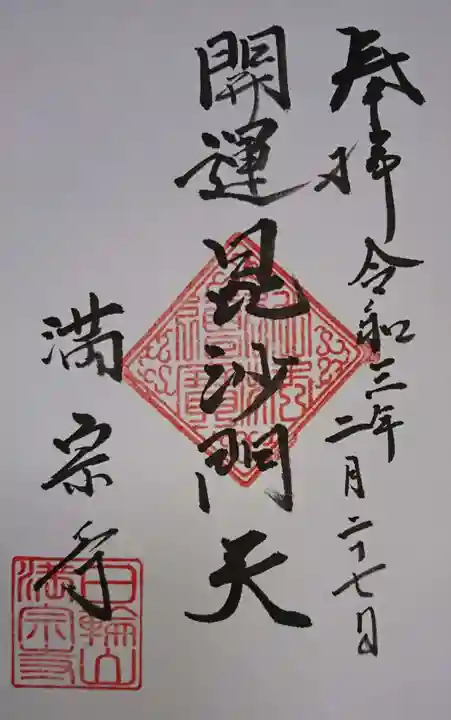 奉拝 令和三年
二月二十七日
開運毘沙門天
満宗寺
日輪山
満宗寺